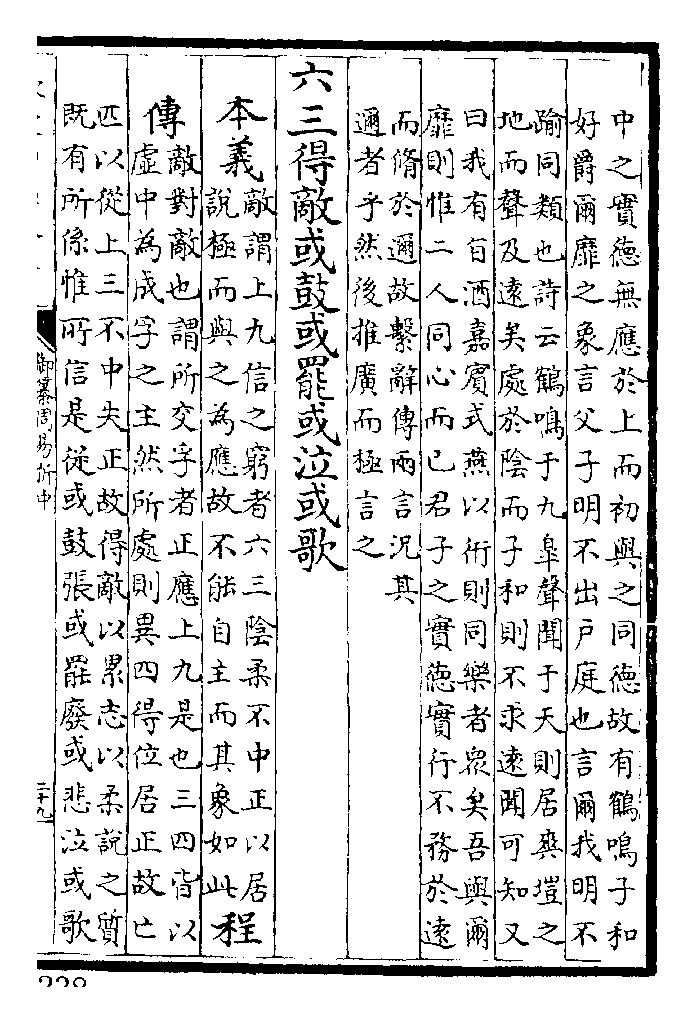 中之實德無應於上而初與之同德故有鶴鳴子和
好爵爾靡之象言父子明不出戶庭也言爾我明不
踰同類也詩云鶴鳴于九皐聲聞于天則居爽塏之
地而聲及遠矣處於陰而子和則不求遠聞可知又
曰我有旨酒嘉賓式燕以衎則同樂者衆矣吾與爾
靡則惟二人同心而已君子之實德實行不務於遠
而脩於邇故繫辭傳兩言況其
邇者乎然後推廣而極言之
六三得敵或鼓或罷或泣或歌
本義敵謂上九信之窮者六三陰柔不中正以居
說極而與之為應故不能自主而其象如此程
傳敵對敵也謂所交孚者正應上九是也三四皆以
虛中為成孚之主然所處則異四得位居正故亡
匹以從上三不中失正故得敵以累志以柔說之質
既有所係惟所信是從或鼓張或罷廢或悲泣或歌
御纂周易折中
二十九
228